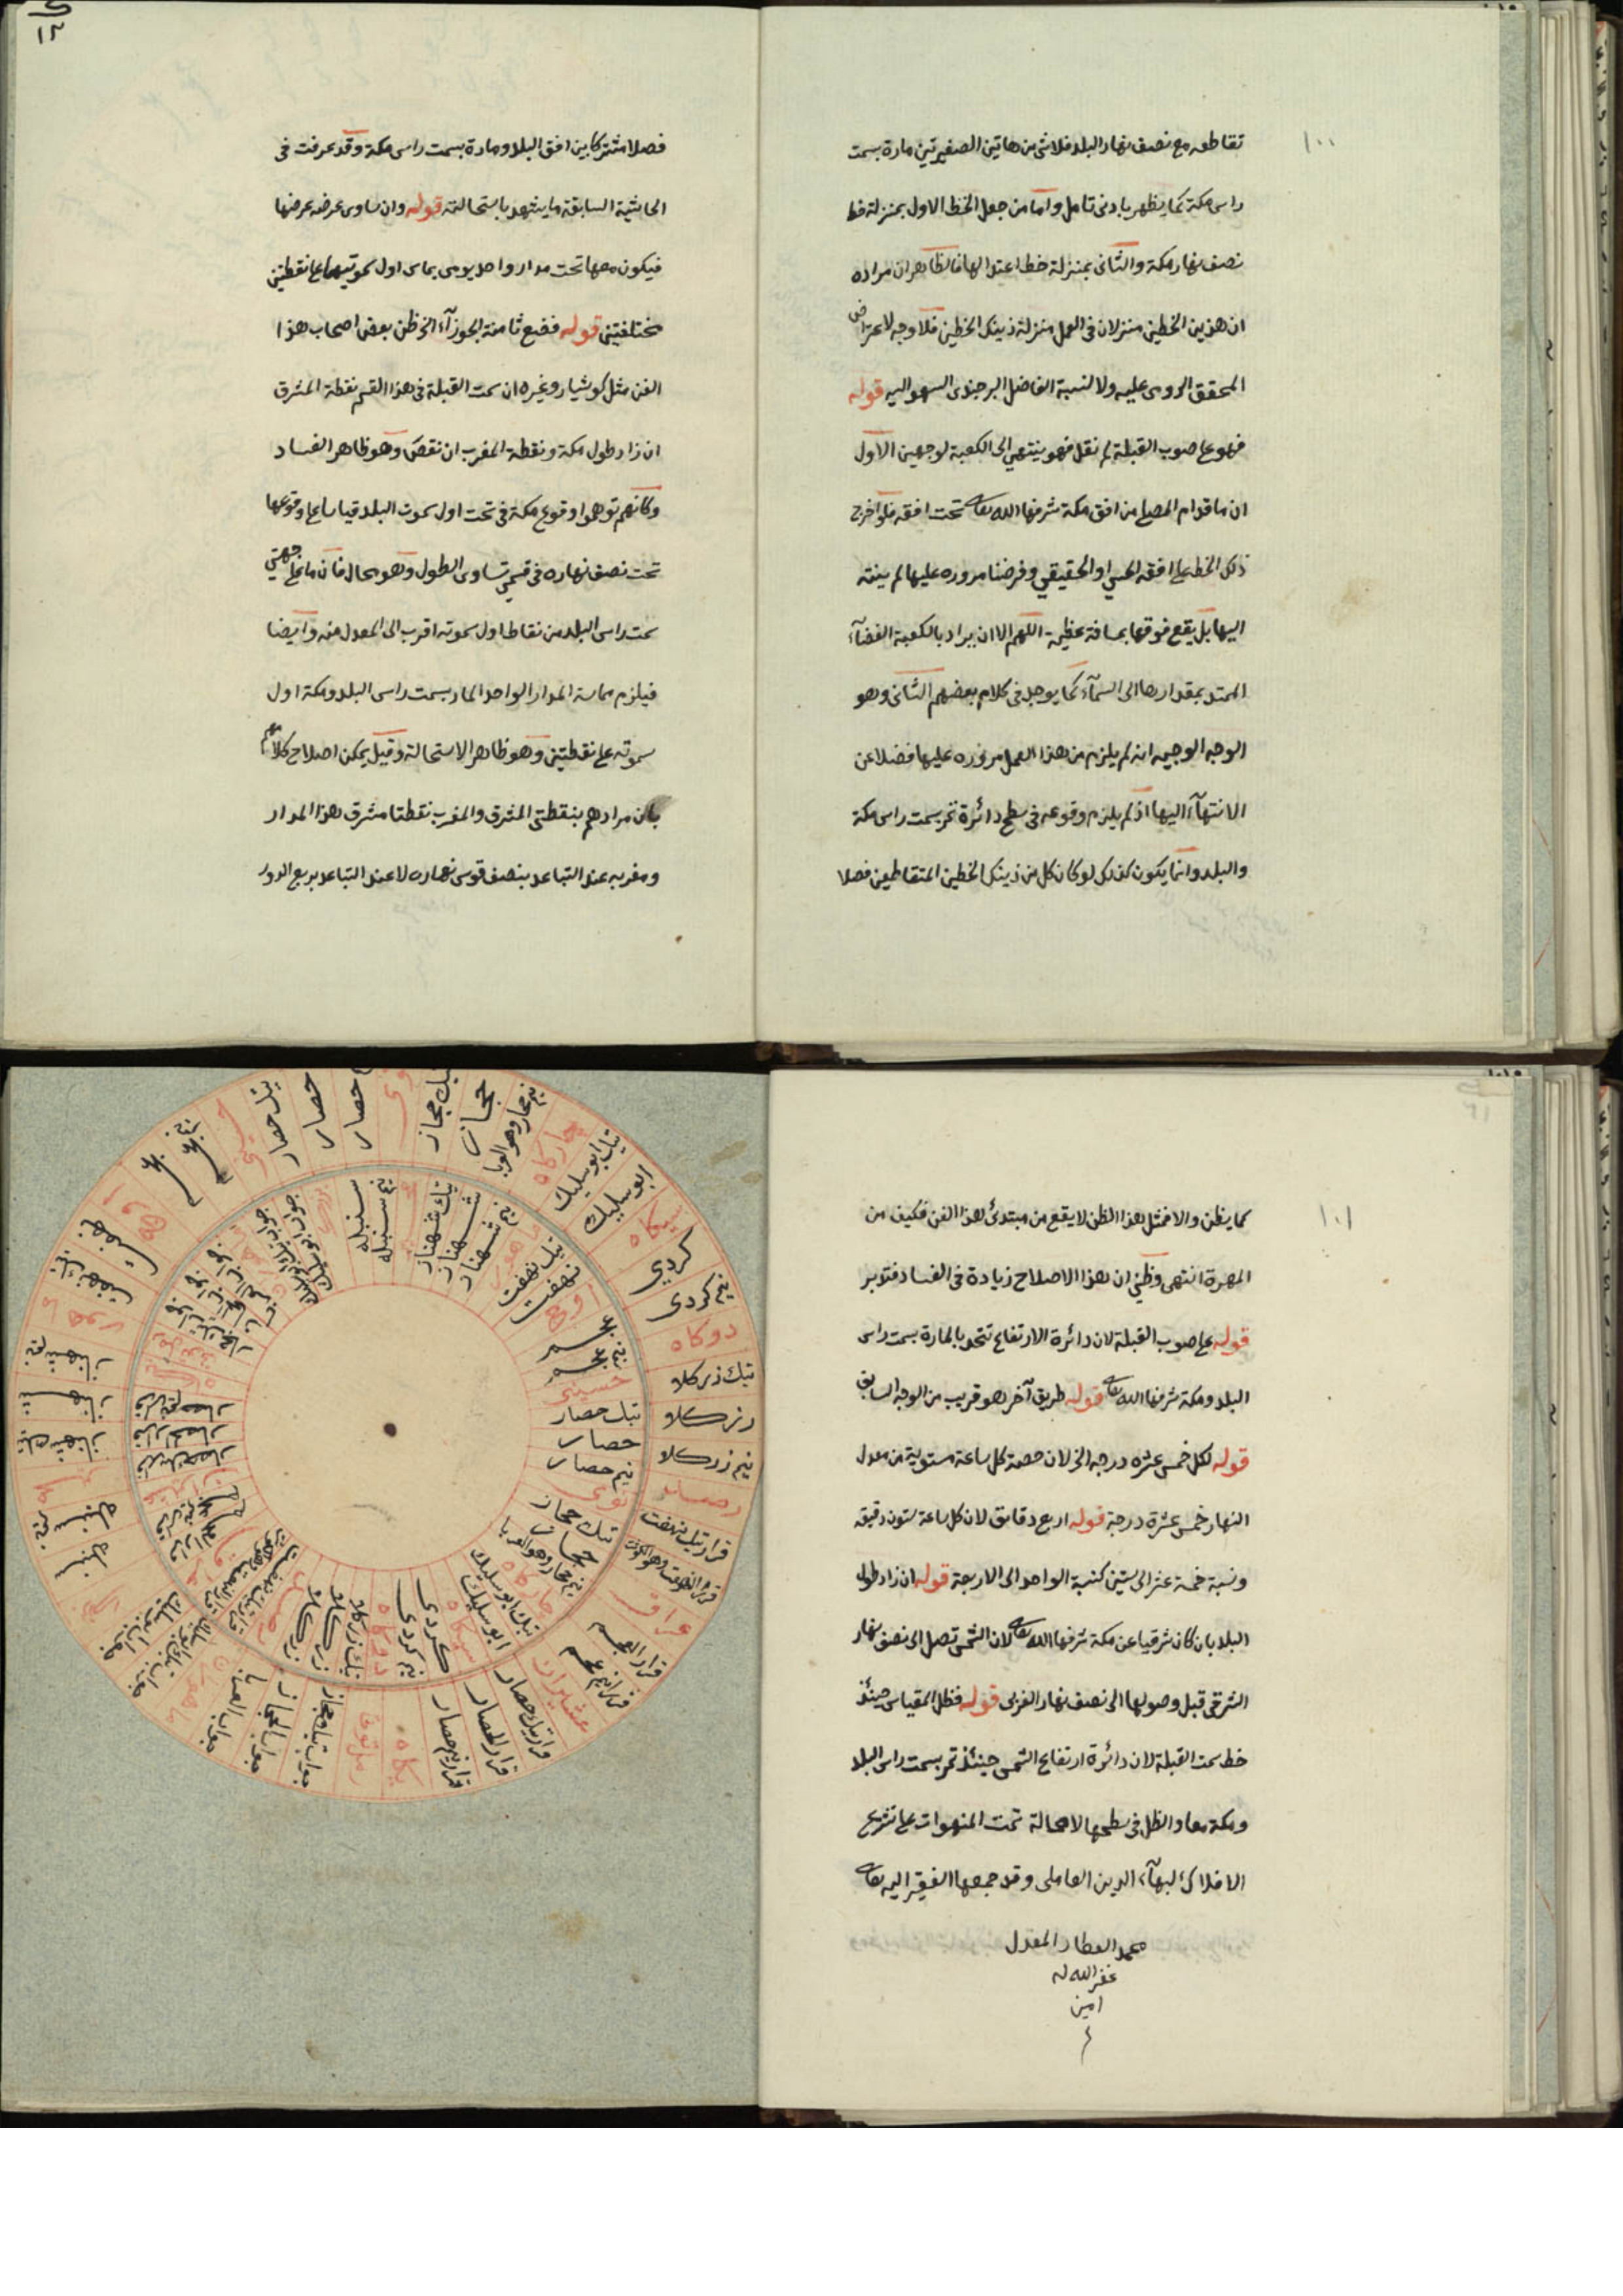 ١٠٠
تقاطعه مع نصف نهار البلد فلا شئ من هاتين الصغيرتين مارة بسمت
راس مكة كما يظهر بادنى تامل واما من جعل الخط الاول بمنزلة خط
نصف نهار مكة والثانى بمنزلة خط اعتدالها فالظاهر ان مراده
ان هذين الخطين منزلان فى العمل منزلة ذينك الخطين فلا وجه لاعتراض
المحقق الرومى عليه ولا لنسبة الفاضل البرجندى السهو اليه قوله
فهو على صوب القبلة لم نقل فهو ينتهى الى الكعبة لوجهين الاول
ان ما قدام المصلى من افق مكة شرفها الله تعالى تحت افقه فلو اخرج
ذلك الخط على افقه الحسى او الحقيقي وفرضنا مروره عليها لم ينته
اليها بل يقع فوقها بمسافة عظيمة اللهم الا ان يراد بالكعبة الفضآء
الممتد بمقدارها الى السمآء كما يوجد فى كلام بعضهم الثانى وهو
الوجه الوجيه انه لم يلزم من هذا العمل مروره عليها فضلا عن
الانتهآء اليها اذ لم يلزم وقوعه فى سطح دائرة تمر بسمت راس مكة
والبلد وانما يكون كذلك لو كان كل من ذينك الخطين المتقاطعين فصلا
١٢
فصلا مشتركا بين افق البلد ومارة بسمت راس مكة وقد عرفت فى
الحاشية السابقة ما يشهد باستحالته قوله وان ساوى عرضه عرضها
فيكون معها تحت مدار واحد يومى يماس اول سموتيهما على نقطتين
مختلفتين قوله فضع ثامنة الجوزآء الخ ظن بعض اصحاب هذا
الفن مثل كوشيار وغيره ان سمت القبلة فى هذا القسم نقطة المشرق
ان زاد طول مكة ونقطة المغرب ان نقص وهو ظاهر الفساد
وكانهم توهموا وقوع مكة فى تحت اول سموت البلد قياسا على وقوعها
تحت نصف نهاره فى قسمى تساوى الطول وهو محال فان ما على جهتي
سمت راس البلد من نقاط اول سموته اقرب الى المعدل منه وايضا
فيلزم مماسة المدار الواحد المار بسمت راسى البلد ومكة اول
سموته على نقطتين وهو ظاهر الاستحالة وقيل يمكن اصلاح كلامهم
بان مرادهم بنقطتى المشرق والمغرب نقطتا مشرق هذا المدار
ومغربه عند التباعد بنصف قوس نهاره لا عند التباعد بربع الدور
١٠١
كما يظن والا فمثل هذا الظن لا يقع من مبتدئ هذا الفن فكيف من
المهرة انتهى وظنى ان هذا الاصلاح زيادة فى الفساد فتدبر
قوله على صوب القبلة لان دائرة الارتفاع تتحد بالمارة بسمت راس
البلد ومكة شرفها الله تعالى قوله طريق آخر هو قريب من الوجه السابق
قوله لكل خمس عشره درجه الخ لان حصة كل ساعة مستوية من معدل
النهار خمس عشرة درجة قوله اربع دقايق لان كل ساعة ستون دقيقه
ونسبة خمسة عشر الى ستين كنسبة الواحد الى الاربعة قوله ان زاد طول
البلد بان كان شرقيا عن مكة شرفها الله تعالى لان الشمس تصل الى نصف نهار
الشرقى قبل وصولها الى نصف نهار الغربى قوله فظل المقياس حينئذ
خط سمت القبلة لان دائرة ارتفاع الشمس حينئذ تمر بسمت راس البلد
ومكة معا والظل فى سطحها لا محالة تمت المنهوات على تشريح
الافلاك لبهآء الدين العاملى وقد جمعها الفقير اليه تعالى
محمد العطار المعدل
غفر الله له
امين
تيك حصار
حصار
تيك حجاز
حجاز
چهاركاه
تيك ابوسليك
ابوسليك
سيكاه
كردي
نيم كردى
دوكاه
تيك زركلاه
زركلاه
نيم زركلاه
رصد
قرار تيك نهفت
عراق
قرار العجم
قرار نيم عجم
عشيران
قرار تيك حصار
قرار الحصار
قرار نيم حصار
يكاه
رمل توتى
نيم شهناز
شهناز
تيك شهناز
سنبله
نيم سنبله
سنبله
تيك شهناز
شهناز
نيم شهناز
ماهور
تيك نهفت
نهفت
اوج
عجم
نيم عجم
حسينى
تيك حصار
حصار
نيم حصار
نوى
تيك حجاز
حجاز
چهاركاه
تيك ابوسليك
ابوسليك
سيكاه
كردى
نيم كردى
دوكاه
تيك زركلاه
زركلاه